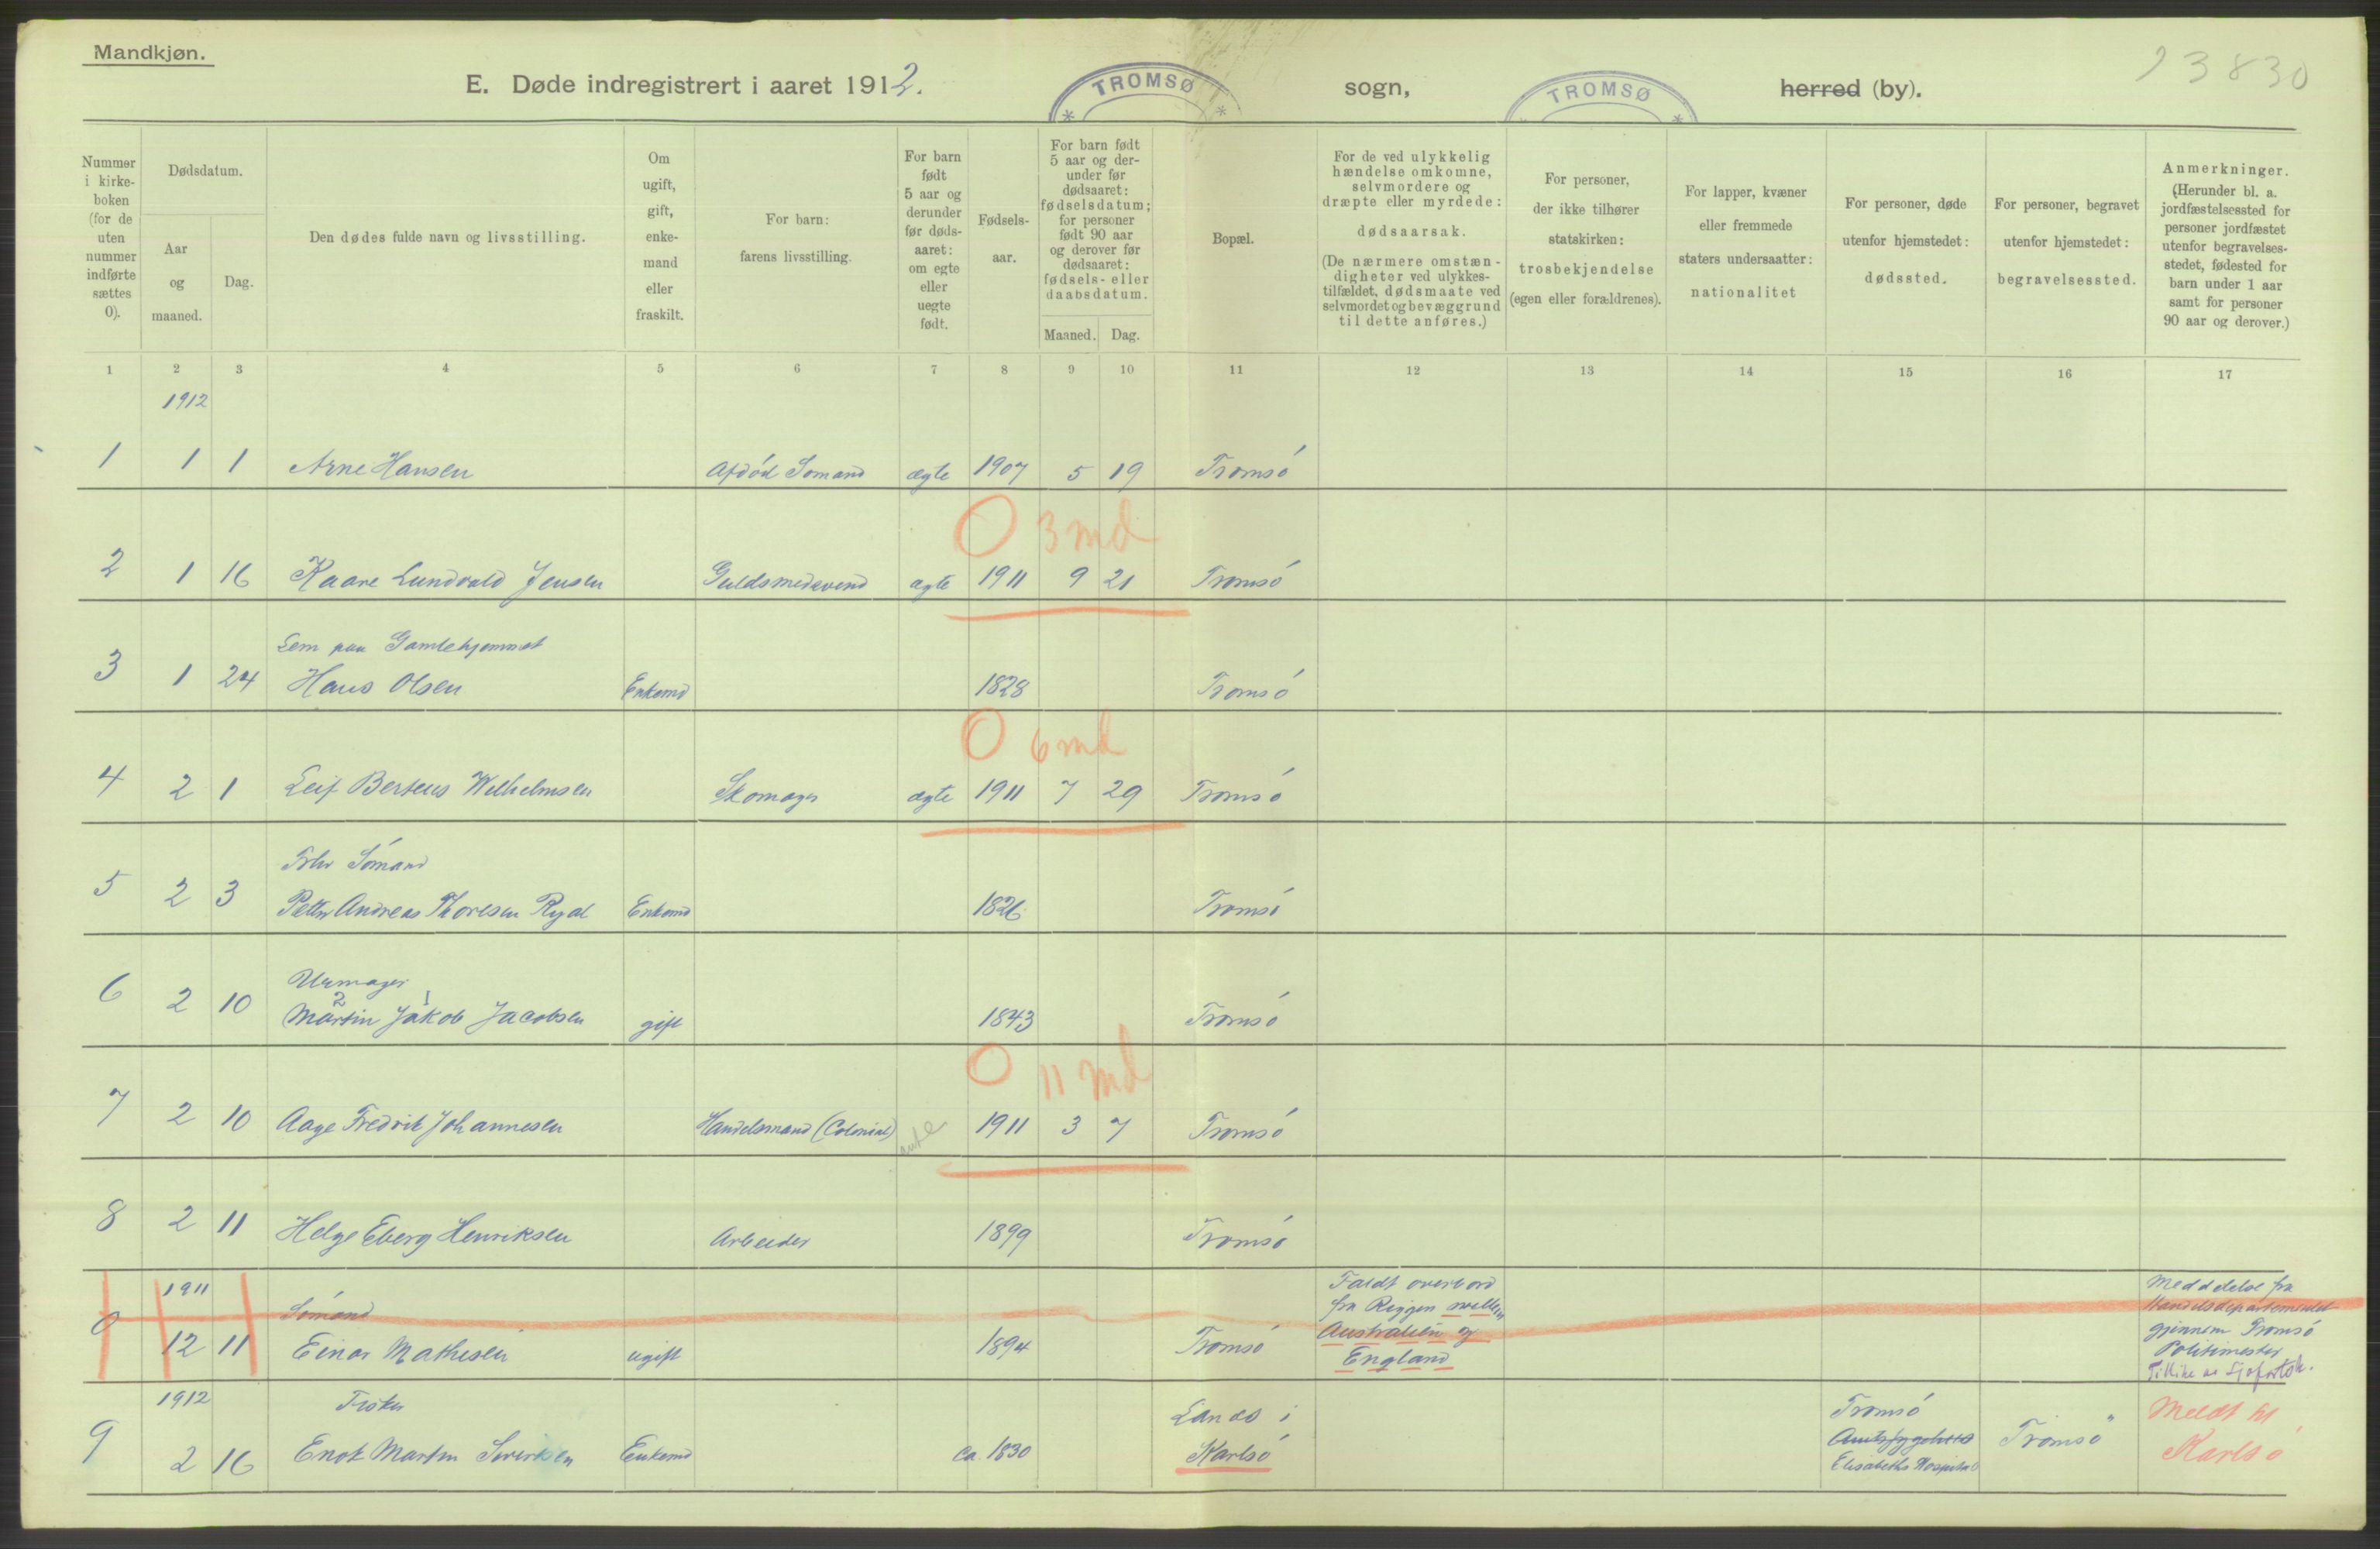 Mandkjøn.
13830
E. Døde indregistrert i aaret 1912. TROMSØ sogn, TROMSØ herred (by).
Nummer i kirke-boken (for de uten nummer indførte sættes 0).
Dødsdatum.
Aar og maaned.
Dag.
Den dødes fulde navn og livsstilling.
Om ugift, gift, enke-mand eller fraskilt.
For barn: farens livsstilling.
For barn født 5 aar og derunder før døds-aaret: om egte eller uegte født.
Fødsels-aar.
For barn født 5 aar og der-under før dødsaaret: fødselsdatum; for personer født 90 aar og derover før dødsaaret: fødsels- eller daabsdatum.
Maaned. Dag.
Bopæl.
For de ved ulykkelig hændelse omkomne, selvmordere og dræpte eller myrdede: dødsaarsak. (De nærmere omstæn-digheter ved ulykkes-tilfældet, dødsmaate ved selvmordet og bevæggrund til dette anføres.)
For personer, der ikke tilhører statskirken: trosbekjendelse (egen eller forældrenes).
For lapper, kvæner eller fremmede staters undersaatter: nationalitet
For personer, døde utenfor hjemstedet: dødssted.
For personer, begravet utenfor hjemstedet: begravelsessted.
Anmerkninger. (Herunder bl. a. jordfæstelsessted for personer jordfæstet utenfor begravelses-stedet, fødested for barn under 1 aar samt for personer 90 aar og derover.)
1 2 3 4 5 6 7 8 9 10 11 12 13 14 15 16 17
1912
1 1 1 Arne Hansen Afdód Sómand ægte 1907 5 19 Tromsó
0 3 md
2 1 16 Kaare Lundvald Jensen Guldsmedsvend ægte 1911 9 21 Tromsó
Lem paa Gamlehjemmet
3 1 24 Hans Olsen Enkemd 1828 Tromsó
0 6 md
4 2 1 Leif Berteus Wilhelmsen Skomager ægte 1911 7 29 Tromsó
Fhv Sómand
5 2 3 Petter Andreas Thoresen Ryal Enkemd 1826 Tromsó
Urmager
2 1
6 2 10 Martin Jakob Jacobsen gift 1843 Tromsó
0 11 md
7 2 10 Aage Fredrik Johannesen Handelsmand (Colonial) 1911 3 7 Tromsó
8 2 11 Helge Eberg Henriksen Arbeider 1899 Tromsó
1911 Sómand
0 12 11 Einar Mathisen ugift 1894 Tromsó
Faldt overbord
fra Riggen mellem
Australien og
England
Meddelelse fra
Handelsdepartementet
gjennem Tromsó
Politimester
Tillike av Sjøfartsk.
1912 Fisker
9 2 16 Enok Martin Sivertsen Enkemd ca. 1830
Lanes i
Karlsó
Tromsó
Amtssygehus
Elisabeths Hospital
Tromsó
Meldt til
Karlsó